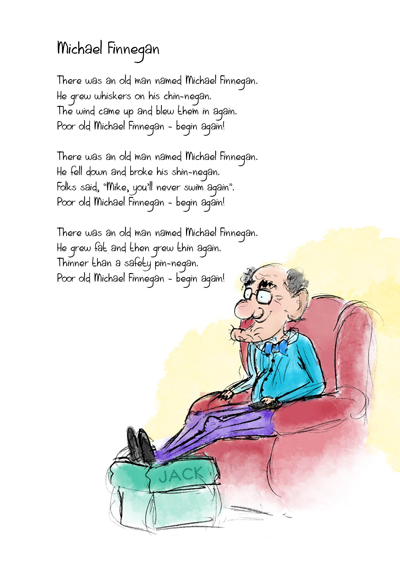 Michael Finnegan
There was an old man named Michael Finnegan.
He grew whiskers on his chin-negan.
The wind came up and blew them in again.
Poor old Michael Finnegan - begin again!
There was an old man named Michael Finnegan.
He fell down and broke his shin-negan.
Folks said, "Mike, you'll never swim again".
Poor old Michael Finnegan - begin again!
There was an old man named Michael Finnegan.
He grew fat and then grew thin again.
Thinner than a safety pin-negan.
Poor old Michael Finnegan - begin again!
JACK